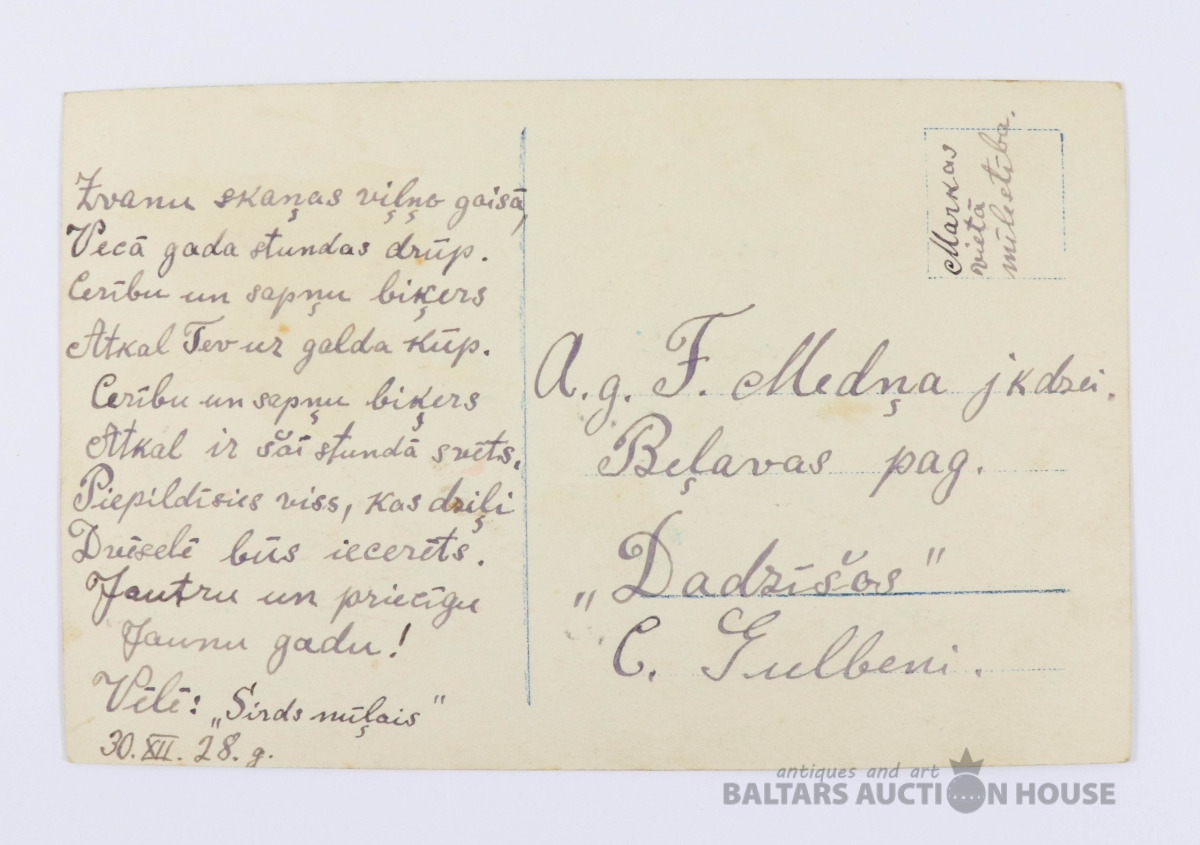 Zvanu skaņas viļņo gaisā,
Vecā gada stundas drūp.
Cerību un sapņu biķers
Atkal Tev uz galda kūp.
Cerību un sapņu biķers
Atkal ir šāī stundā svēts,
Piepildīsies viss, kas dziļi
Dvēselē būs iecerēts.
Jautru un priecīgu
Jaunu gadu!
Vēlē: „Sirds mīļais"
30. XII. 28. g.
Markas
vietā
mīlestība.
A. g. F. Medņa jkdzei.
Beļavas pag.
„Dadzīšos"
C. Gulbeni.
antiques and art
BALTARS AUCTION HOUSE